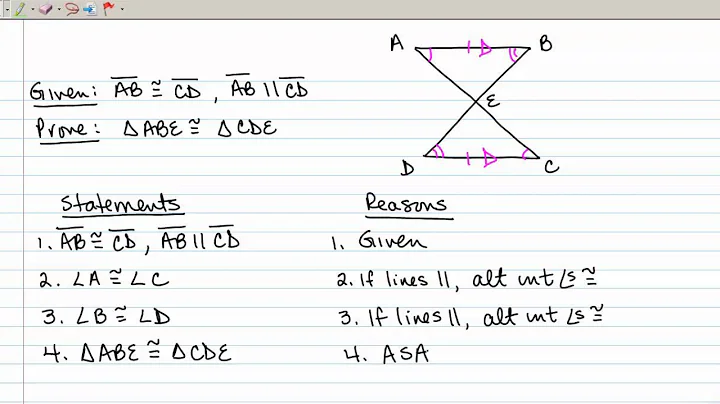 A B
Given: AB ≅ CD , AB || CD
E
Prove: △ABE ≅ △CDE
D C
Statements Reasons
1. AB ≅ CD , AB || CD 1. Given
2. ∠A ≅ ∠C 2. If lines ||, alt int ∠s ≅
3. ∠B ≅ ∠D 3. If lines ||, alt int ∠s ≅
4. △ABE ≅ △CDE 4. ASA